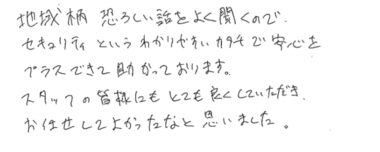 地域柄 恐ろしい話をよく聞くので、
セキュリティ というわかりやすいカタチで安心を
プラスできて助かっております。
スタッフの皆様にも とても良くしていただき、
お任せしてよかったなと思いました。